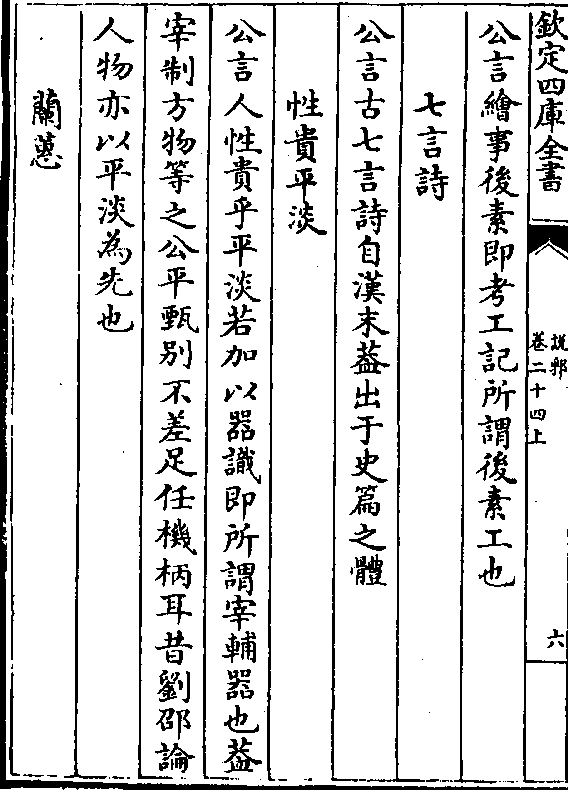 欽定四庫全書
說郛
卷二十四上
六
公言繪事後素即考工記所謂後素工也
七言詩
公言古七言詩自漢末葢出于史篇之體
性貴平淡
公言人性貴乎平淡若加以器識即所謂宰輔器也葢
宰制方物等之公平甄別不差足任機柄耳昔劉邵論
人物亦以平淡為先也
蘭蕙